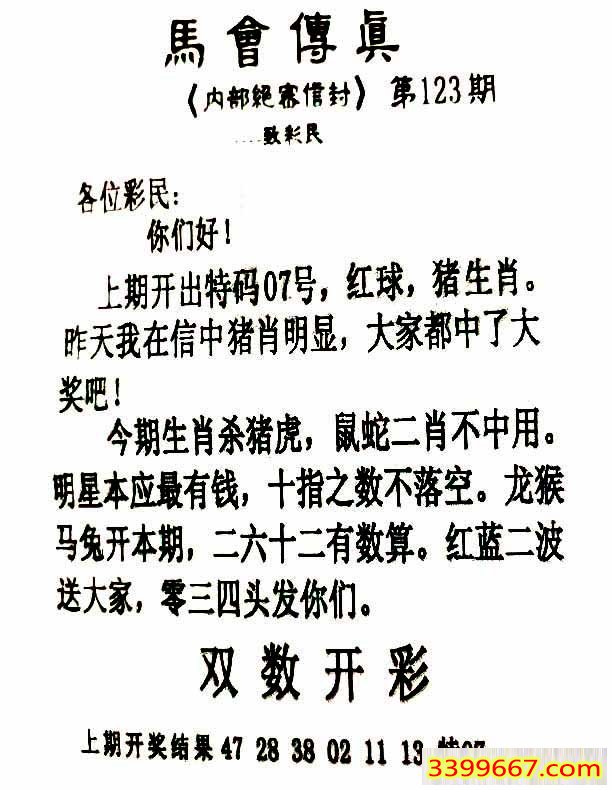 馬會傳眞
《内部絕密信封》 第123期
....致彩民
各位彩民：
你们好！
上期开出特码07号，红球，猪生肖。
昨天我在信中猪肖明显，大家都中了大
奖吧！
今期生肖杀猪虎，鼠蛇二肖不中用。
明星本应最有钱，十指之数不落空。龙猴
马兔开本期，二六十二有数算。红蓝二波
送大家，零三四头发你们。
双数开彩
上期开奖结果 47 28 38 02 11 13
3399667.com